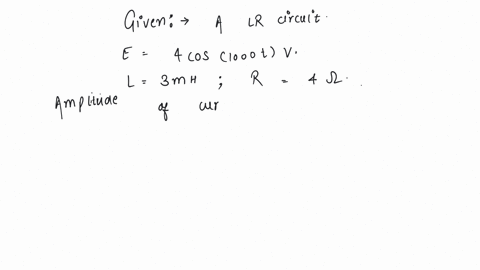 Given:→ A LR circuit.
E = 4 cos (1000t) V.
L = 3mH ; R = 4 Ω.
Amplitude of cur